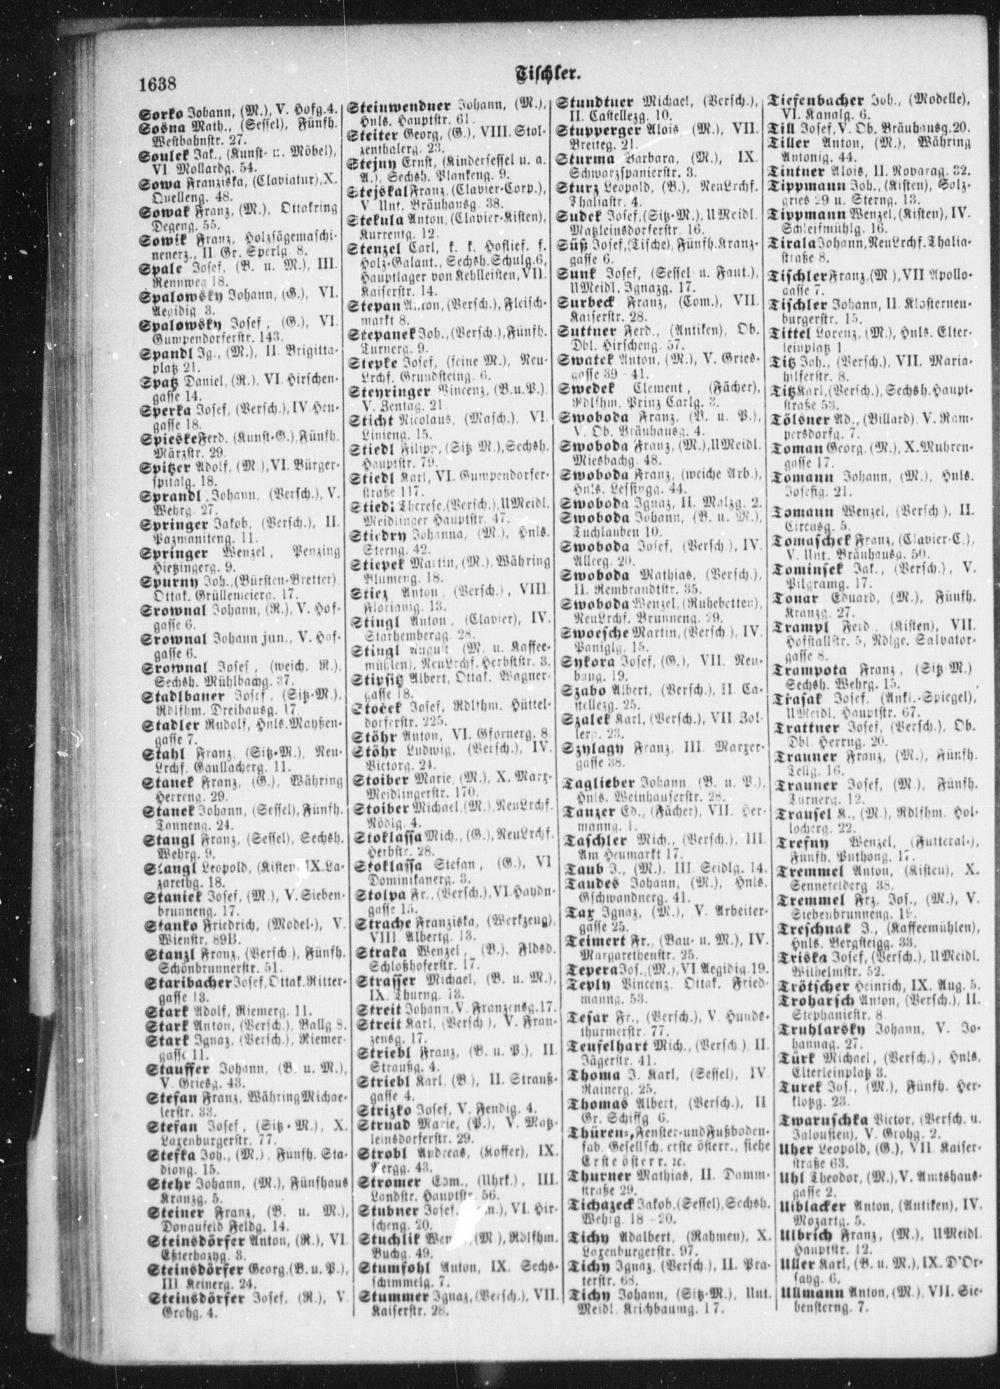 1638
Tischler.
Sorko Johann, (M.), V. Hofg. 4.
Sosna Math., (Sessel), Fünfh.
Westbahnstr. 27.
Soulek Jak., (Kunst- u. Möbel),
VI Mollardg. 54.
Sowa Franziska, (Claviatur), X.
Quelleng. 48.
Sowak Franz, (M.), Ottakring
Degeng. 55.
Sowik Franz, Holzsägemaschi-
nenerz., II. Gr. Sperlg 8.
Spale Josef, (B. u. M.), III.
Rennweg 18.
Spalowsky Johann, (G.), VI.
Aegidig 3.
Spalowsky Josef, (G.), VI.
Gumpendorferstr. 143.
Spandl Ig., (M.), II. Brigitta-
platz 21.
Spatz Daniel, (R.), VI. Hirschen-
gasse 14.
Sperka Josef, (Versch.), IV. Heu-
gasse 18.
Spieske Ferd. (Kunst-G.), Fünfh.
Märzstr. 29.
Spitzer Adolf, (M.), VI. Bürger-
spitalg. 18.
Sprandl Johann, (Versch.), V.
Wehrg. 27.
Springer Jakob, (Versch.), II.
Pazmaniteng. 11.
Springer Wenzel, Penzing
Hietzingerg. 9.
Spurny Joh., (Bürsten-Bretter)
Ottak. Grüllemeierg. 17.
Srownal Johann, (R.), V. Hof-
gasse 6.
Srownal Johann jun., V. Hof-
gasse 6.
Srownal Josef, (weich. R.),
Sechsh. Mühlbachg. 37.
Stadlbauer Josef, (Sitz-M.),
Rdlfhm. Dreihausg. 17.
Stadler Rudolf, Hnls. Mayßen-
gasse 7.
Stahl Franz, (Sitz-M.), Neu-
Lrchf. Gaullacherg. 11.
Stanek Franz, (G.), Währing
Herreng. 29.
Stanek Johann, (Sessel), Fünfh.
Tanneng. 24.
Stangl Franz, (Sessel), Sechsh.
Wehrg. 9.
Stangl Leopold, (Kisten, IX. La-
zarethg. 18.
Staniek Josef, (M.), V. Sieben-
brunneng. 17.
Stanko Friedrich, (Model-), V.
Wienstr. 89B.
Stanzl Franz, (Versch.), Fünfh.
Schönbrunnerstr. 51.
Staribacher Josef, Ottak. Ritter-
gasse 13.
Stark Adolf, Riemerg. 11.
Stark Anton, (Versch.), Ballg 8.
Stark Ignaz, (Versch.), Riemer-
gasse 11.
Stauffer Johann, (B. u. M.),
V. Griesg. 43.
Stefan Franz, Währing Michae-
lerstr. 33.
Stefan Josef, (Sitz-M.), X.
Laxenburgerstr. 77.
Stefka Joh., (M.), Fünfh. Sta-
diong. 15.
Stehr Johann, (M.), Fünfhaus
Kranzg. 5.
Steiner Franz, (B. u. M.),
Donaufeld Feldg. 14.
Steinsdörfer Anton, (R.), VI.
Eßterhazyg. 3.
Steinsdörfer Georg, (B. u. P.),
III. Keinerg. 24.
Steinsdörfer Josef, (R.), V.
Grohg. 4.
Steinwendner Johann, (M.),
Hnls. Hauptstr. 61.
Steiter Georg, (G.), VIII. Stol-
zenthalerg. 23.
Stejny Ernst, (Kindersessel u. a.
A.), Sechsh. Plankeng. 9.
Stejskal Franz (Clavier-Corp.),
V. Unt. Bräuhausg. 38.
Stekula Anton, (Clavier-Kisten),
Kurrentg. 12.
Stenzel Carl, k. k. Hoflief. f.
Holz-Galant., Sechsh. Schulg. 6,
Hauptlager von Kehlleisten, VII.
Kaiserstr. 14.
Stepan Anton, (Versch.), Fleisch-
markt 8.
Stepanek Joh., (Versch.), Fünfh.
Turnerg. 9.
Stepke Josef, (feine M.), Neu-
Lrchf. Grundsteing. 6.
Steyringer Vincenz, (B. u. P.),
V. Zentag. 21.
Sticht Nicolaus, (Masch.), VI.
Linieng. 15.
Stiedl Filipp, (Sitz M.), Sechsh.
Hauptstr. 79.
Stiedl Karl, VI. Gumpendorfer-
straße 117.
Stiedl Therese, (Versch.), U Meidl.
Meidlinger Hauptstr. 47.
Stiedry Johanna, (M.), Hnls.
Sterng. 42.
Stiepek Martin, (M.), Währing
Blumeng. 18.
Stiez Anton, (Versch.), VIII.
Florianig. 13.
Stingl Anton, (Clavier), IV.
Starhembergg. 28.
Stingl August (M. u. Kaffee-
mühlen), NeuLrchf. Herbststr. 3.
Stipsitz Albert, Ottak. Wagner-
gasse 18.
Stocek Josef, Rdlfhm. Hüttel-
dorferstr. 225.
Stöhr Anton, VI. Gfornerg. 8
Stöhr Ludwig, (Versch.), IV.
Victorg. 24.
Stoiber Marie, (M.), X. Marx-
Meidlingerstr. 170.
Stoiber Michael, (M.), NeuLrchf.
Nödig. 4.
Stoklassa Mich., (G.), NeuLrchf.
Herbstr. 28.
Stoklassa Stefan, (G.), VI
Dominikanerg. 3.
Stolpa Fr., (Versch.), VI. Haydn-
gasse 15.
Strache Franziska, (Werkzeug),
VIII. Albertg. 13.
Straka Wenzel, (B.), Fldsd.
Schloßhoferstr. 17.
Strasser Michael, (B. u. M.),
IX. Thurng. 13.
Streit Johann, V. Franzensg. 17.
Streit Karl, (Versch.), V. Fran-
zensg. 17.
Striebl Franz, (B. u. P.), II.
Straußg. 4.
Striebl Karl, (B.), II. Strauß-
gasse 4.
Strizko Josef, V. Fendig. 4.
Strnad Marie, (P.), V. Matz-
leinsdorferstr. 29.
Strobl Andreas, (Koffer), IX.
Bergg. 43.
Stromer Edm., (Uhrk.), III.
Landstr. Hauptstr. 56.
Stubner Josef, VI. Hir-
scheng. 20.
Stuchlik (M.), Rdlfhm.
Buchg. 49.
Stumfohl Anton, IX. Sechs-
schimmelg. 7.
Stummer Ignaz, (Versch.), VII.
Kaiserstr. 28.
Stundtner Michael, (Versch.),
II. Castellezg. 10.
Stupperger Alois, (M.), VII.
Breiteg. 21.
Sturma Barbara, (M.), IX.
Schwarzspanierstr. 3.
Sturz Leopold, (B.), NeuLrchf.
Thaliastr. 4.
Sudek Josef, (Sitz-M.), U Meidl.
Matzleinsdorferstr. 16.
Süß Josef, (Tische), Fünfh. Kranz-
gasse 6.
Sunk Josef, (Sessel u. Faut.),
U Meidl. Ignazg. 17.
Surbeck Franz, (Com.), VII.
Kaiserstr. 28.
Suttner Ferd., (Antiken), Ob.
Dbl. Hirscheng. 57.
Swatek Anton, (M.), V. Gries-
gasse 39-41.
Swedek Clement, (Fächer),
Rdlfhm. Prinz Carlg. 3.
Swoboda Franz, (B. u. P.),
V. Ob. Bräuhausg. 4.
Swoboda Franz, (M.), U Meidl.
Miesbachg. 48.
Swoboda Franz, (weiche Arb.),
Hnls. Lessingg. 44.
Swoboda Ignaz, II. Malzg. 2.
Swoboda Johann, (B. u. M.),
Tuchlauben 10.
Swoboda Josef, (Versch.), IV.
Alleeg. 20.
Swoboda Mathias, (Versch.),
II. Rembrandtstr. 35.
Swoboda Wenzel, (Ruhebetten),
NeuLrchf. Brunneng. 29.
Swoesche Martin, (Versch.), IV.
Paniglg. 15.
Sykora Josef, (G.), VII. Neu-
baug. 19.
Szabo Albert, (Versch.), II. Ca-
stellezg. 25.
Szalek Karl, (Versch.), VII. Zol-
lerg. 23.
Szylagy Franz, III. Marxer-
gasse 38.
Taglieber Johann (B. u. P.),
Hnls. Weinhauserstr. 28.
Tanzer Ed., (Fächer), VII. Her-
manng. 1.
Taschler Mich., (Versch.), III.
Am Heumarkt 17.
Taub J., (M.), III. Seidlg. 14.
Taudes Johann, (M.), Hnls.
Gschwandnerg. 41.
Tax Ignaz, (M.), V. Arbeiter-
gasse 25.
Teimert Fr., (Bau- u. M.), IV.
Margarethenstr. 25.
Tepera Jos., (M.), VI Aegidig. 19.
Teply Vincenz, Ottak. Fried-
manng. 53.
Tesar Fr., (Versch.), V. Hunds-
thurmerstr. 77.
Teufelhart Mich., (Versch.), II.
Jägerstr. 41.
Thoma J. Karl, (Sessel), IV.
Rainerg. 25.
Thomas Albert, (Versch.), II
Gr. Schiffg 6.
Thüren-, Fenster- und Fußboden-
fab. Gesellsch. erste österr., siehe
Erste österr. rc.
Thurner Mathias, II. Damm-
straße 29.
Tichazeck Jakob, (Sessel), Sechsh.
Wehrg. 18-20.
Tichy Adalbert, (Rahmen), X.
Laxenburgerstr. 97.
Tichy Ignaz, (Versch.), II. Pra-
terstr. 68.
Tichy Johann, (Sitz-M.), Unt.
Meidl. Krichbaumg. 17.
Tiefenbacher Joh., (Modelle),
VI. Kanalg. 6.
Till Josef, V. Ob. Bräuhausg. 20.
Tiller Anton, (M.), Währing
Antonig. 44.
Tintner Alois, II. Novarag. 32.
Tippmann Joh., (Kisten), Salz-
gries 29 u. Sterng. 13.
Tippmann Wenzel, (Kisten), IV.
Schleifmühlg. 16.
Tirala Johann, NeuLrchf. Thalia-
straße 8.
Tischler Franz, (M.), VII Apollo-
gasse 7.
Tischler Johann, II. Klosterneu-
burgerstr. 15.
Tittel Lorenz, (M.), Hnls. Elter-
leinplatz 1.
Titz Joh., (Versch.), VII. Maria-
hilferstr. 8.
Titz Karl, (Versch.), Sechsh. Haupt-
straße 53.
Tölsner Ad., (Billard), V. Ram-
persdorfg. 7.
Toman Georg, (M.), X. Muhren-
gasse 17.
Tomann Johann, (M.), Hnls.
Josefig. 21.
Tomann Wenzel, (Versch.), II.
Circusg. 5.
Tomaschek Franz, (Clavier-C.),
V. Unt. Bräuhausg. 50.
Tominsek Jak., (Versch.), V.
Pilgramg. 17.
Tonar Eduard, (M.), Fünfh.
Kranzg. 27.
Trampl Ferd., (Kisten), VII.
Hofstallstr. 5, Ndlge. Salvator-
gasse 8.
Trampota Franz, (Sitz M.)
Sechsh. Wehrg. 15.
Trasak Josef, (Anti.-Spiegel),
U Meidl. Hauptstr. 67.
Trattner Josef, (Versch.), Ob.
Dbl. Herrng. 20.
Trauner Franz, (M.), Fünfh.
Tellg. 16.
Trauner Josef, (M.), Fünfh.
Turnerg. 12.
Trausel K., (M.), Rdlfhm. Hol-
locherg. 22.
Trefny Wenzel, (Futteral-),
Fünfh. Puthong. 17.
Tremmel Anton, (Kisten), X.
Sennefelderg 38.
Tremmel Frz. Jos., (M.), V.
Siebenbrunneng. 19.
Treschnak J., (Kaffeemühlen),
Hnls. Bergsteigg. 33.
Triska Josef, (Versch.), U Meidl.
Wilhelmstr. 52.
Trötscher Heinrich, IX. Aug. 5.
Troharsch Anton, (Versch.), II.
Stephaniestr. 8
Truhlarsky Johann, V. Jo-
hannag. 27.
Türk Michael, (Versch.), Hnls.
Elterleinplatz 3.
Turek Jos., (M.), Fünfh. Her-
klotzg. 23.
Twaruschka Victor, (Versch. u.
Jalousien), V. Grohg. 2.
Uher Leopold, (G.), VII. Kaiser-
straße 63.
Uhl Theodor, (M.), V. Amtshaus-
gasse 2.
Uiblacker Anton, (Antiken), IV.
Mozartg. 5.
Ulbrich Franz, (M.), U Meidl.
Hauptstr. 12.
Uller Karl, (B. u. M.), IX. D'Or-
sayg. 6.
Ullmann Anton, (M.), VII. Sie-
bensterng. 7.